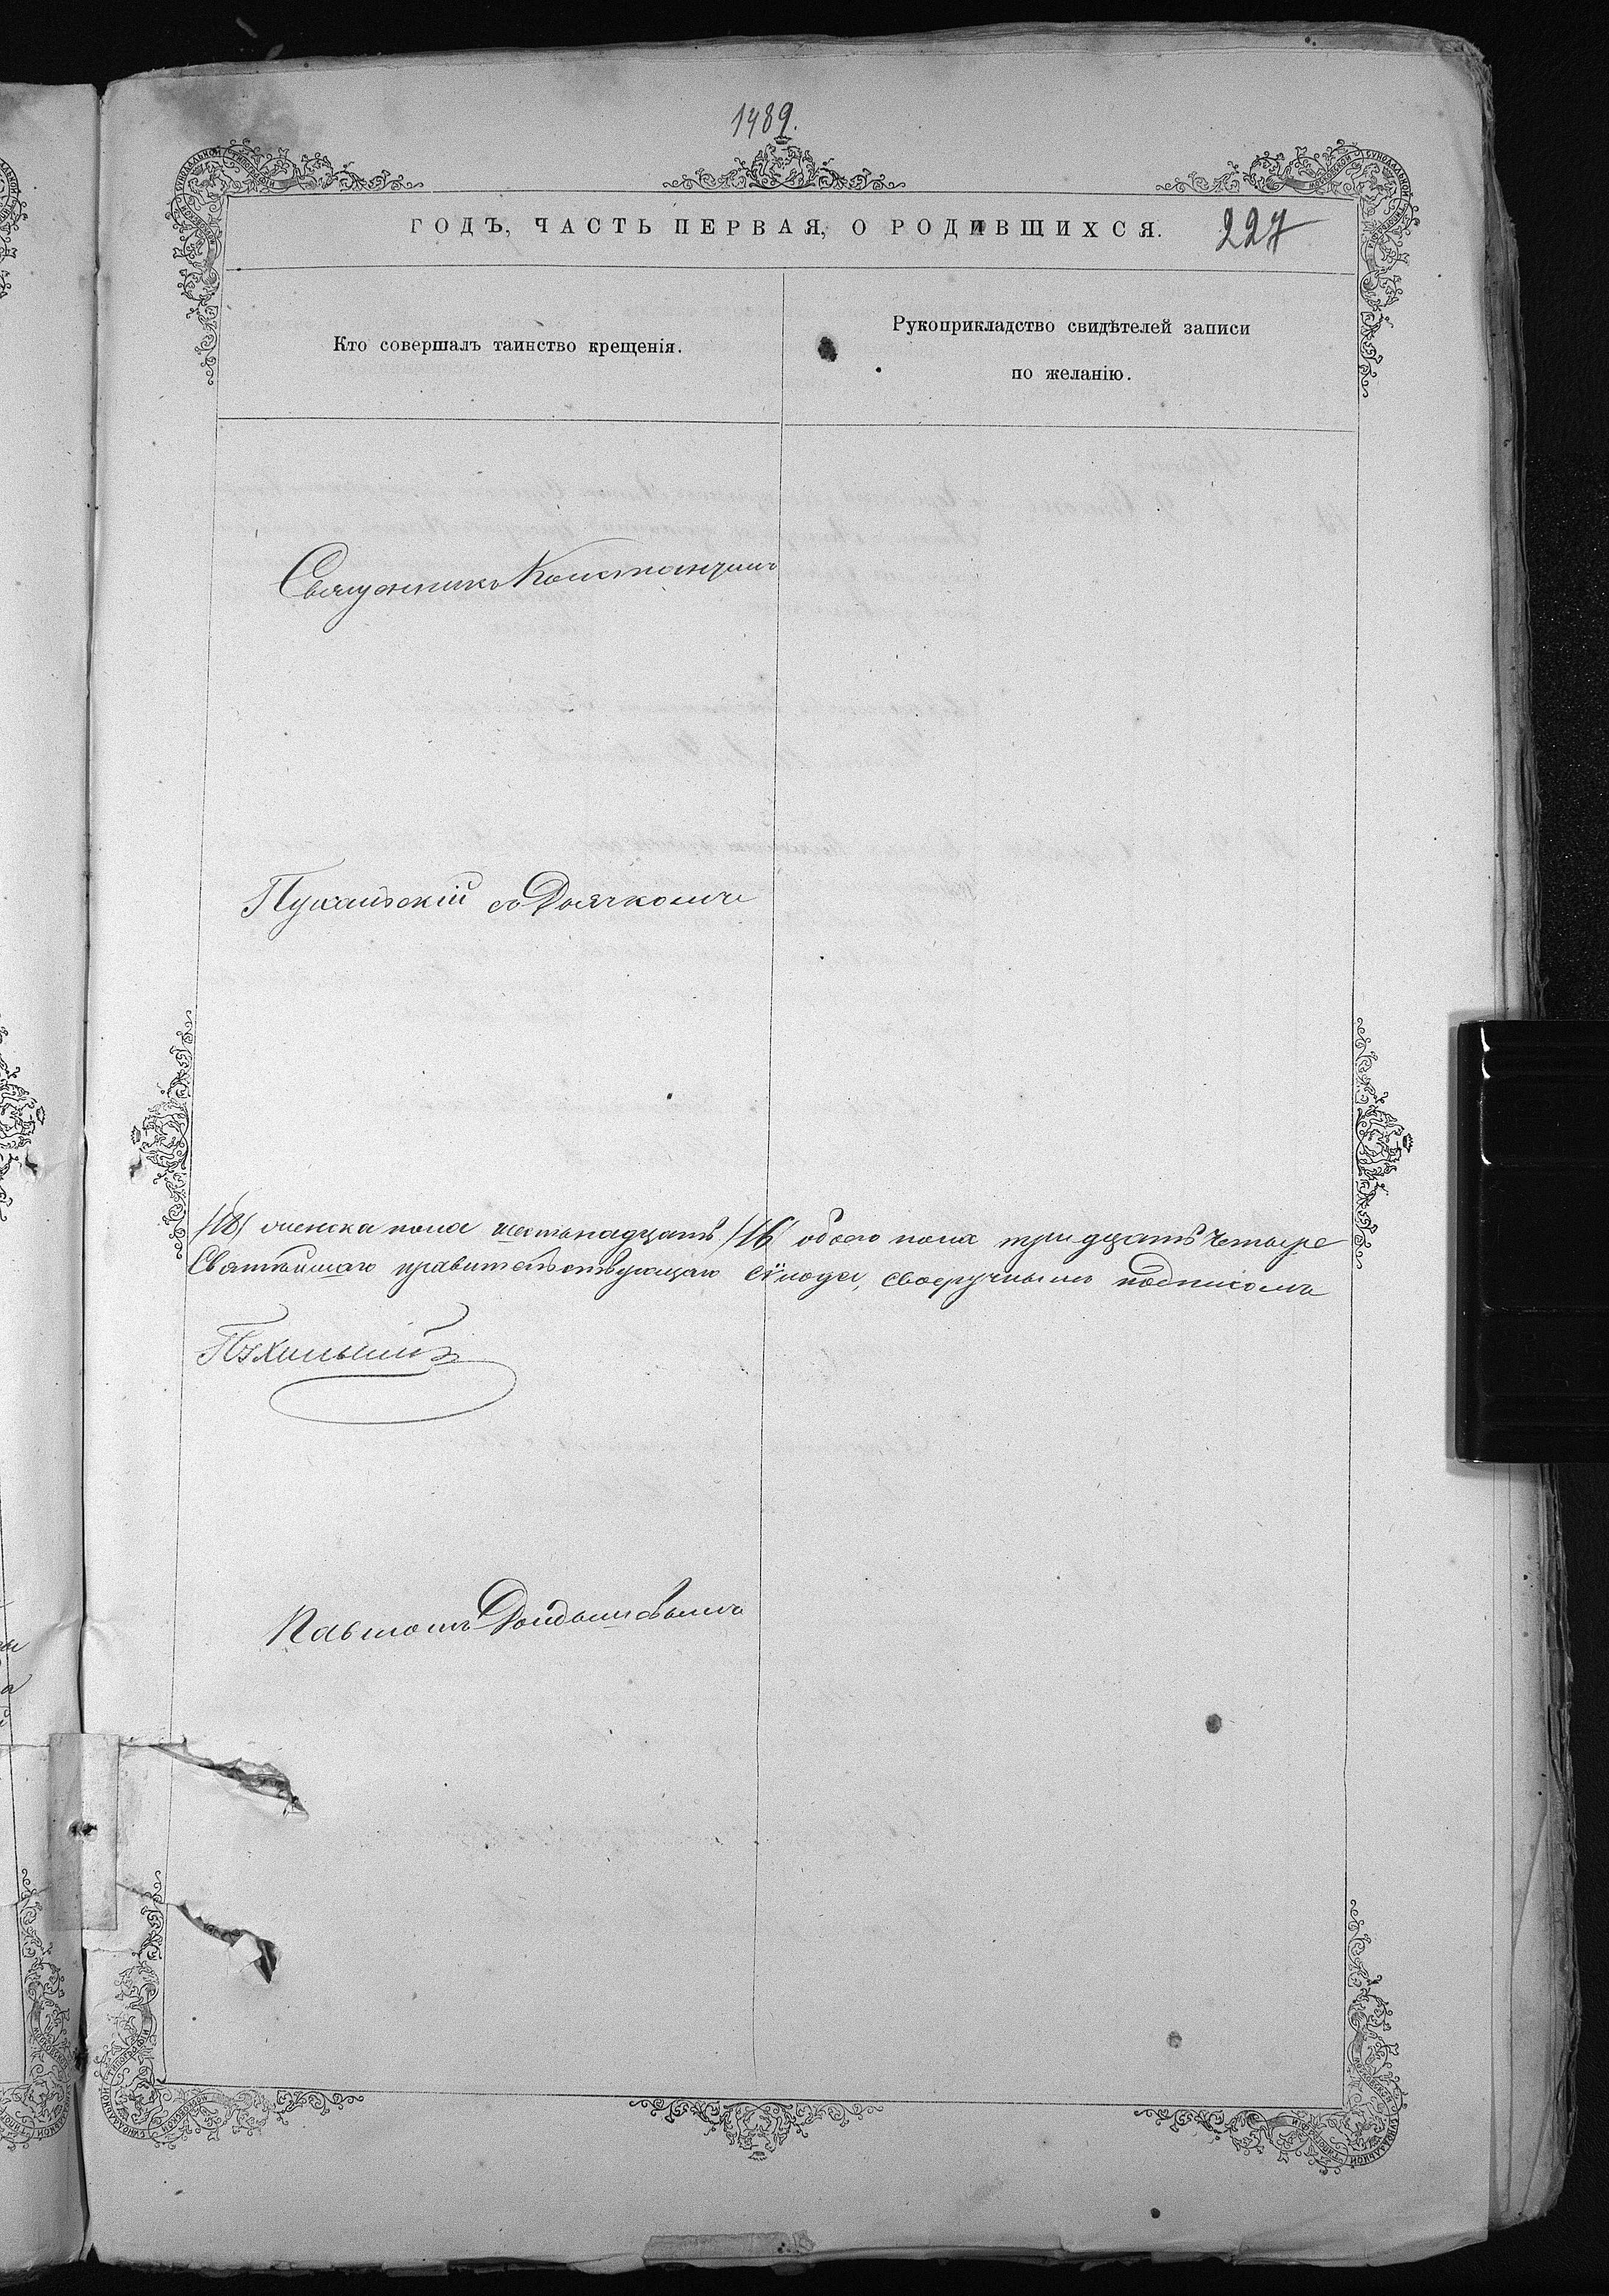 1489.
ГОДЪ, ЧАСТЬ ПЕРВАЯ, О РОДИВШИХСЯ. 227
Кто совершалъ таинство крещенія.
Рукоприкладство свидѣтелей записи
по желанію.
Священникъ Константинъ
Пухальскій съ Дьячкомъ
/18/ женска пола шестьнадцать /16/ обоего пола тридцать четыре
Святѣйшаго правительствующаго Сѵнода, своеручнымъ подписомъ
Пухальскій
Павломъ